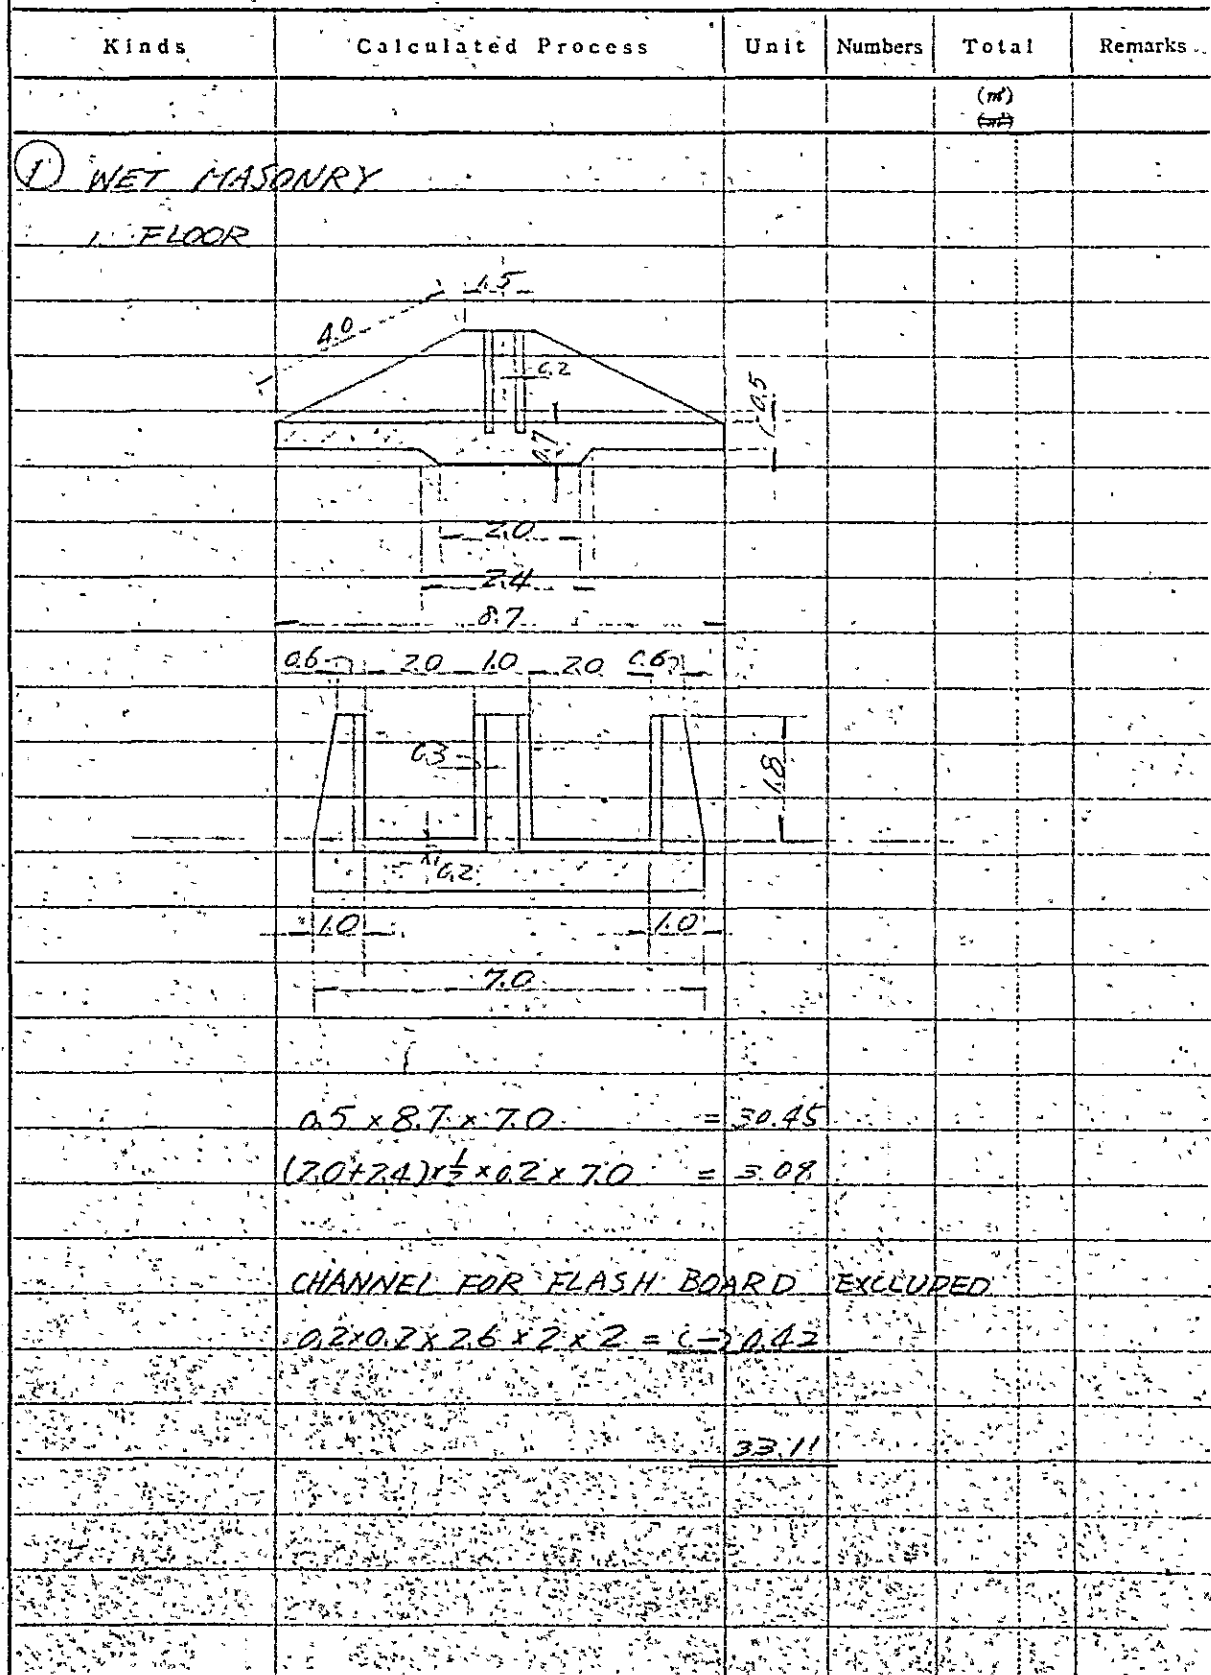 Kinds Calculated Process Unit Numbers Total Remarks
(m³)
① WET MASONRY
1. FLOOR
1.5
4.0
0.2
0.5
0.7
2.0
2.4
8.7
0.6 2.0 1.0 2.0 0.6
0.3
1.8
0.2
1.0 1.0
7.0
0.5 × 8.7 × 7.0 = 30.45
(2.0+2.4)×½×0.2×7.0 = 3.08
CHANNEL FOR FLASH BOARD EXCLUDED
0.2×0.2×2.6×2×2 = (-) 0.42
33.11